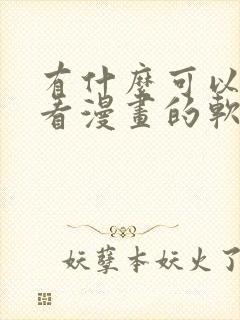 有什麼可以
看漫畫的軟
妖孽本妖火了